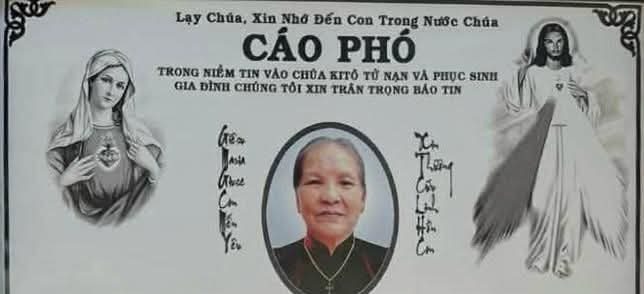 Lạy Chúa, Xin Nhớ Đến Con Trong Nước Chúa
CÁO PHÓ
TRONG NIỀM TIN VÀO CHÚA KITÔ TỬ NẠN VÀ PHỤC SINH
GIA ĐÌNH CHÚNG TÔI XIN TRÂN TRỌNG BÁO TIN
Giêsu
Maria
Giuse
Con
Mến
Yêu
Xin
Thương
Cứu
Linh
Hồn
Con